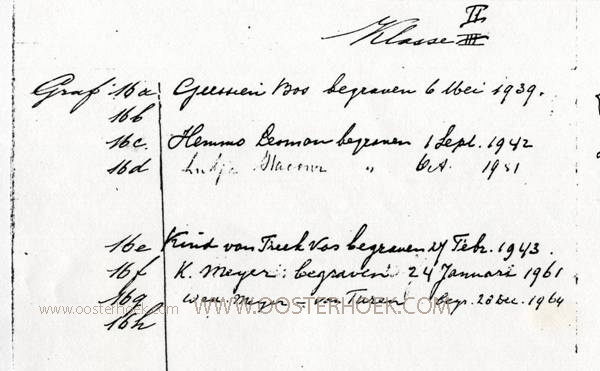 Klasse III II
Graf 16a Geessien Bos begraven 6 Mei 1939.
16b
16c. Hemmo Leeman begraven 1 Sept. 1942
16d " Oct. 1951
16e Kind van Freek Vos begraven 24 Febr. 1943.
16f K. Meyer: begraven 24 Januari 1961
16g Wed. Meyer van Turen begr. 28 Dec. 1964
16h
www.oosterhoek.com WWW.OOSTERHOEK.COM